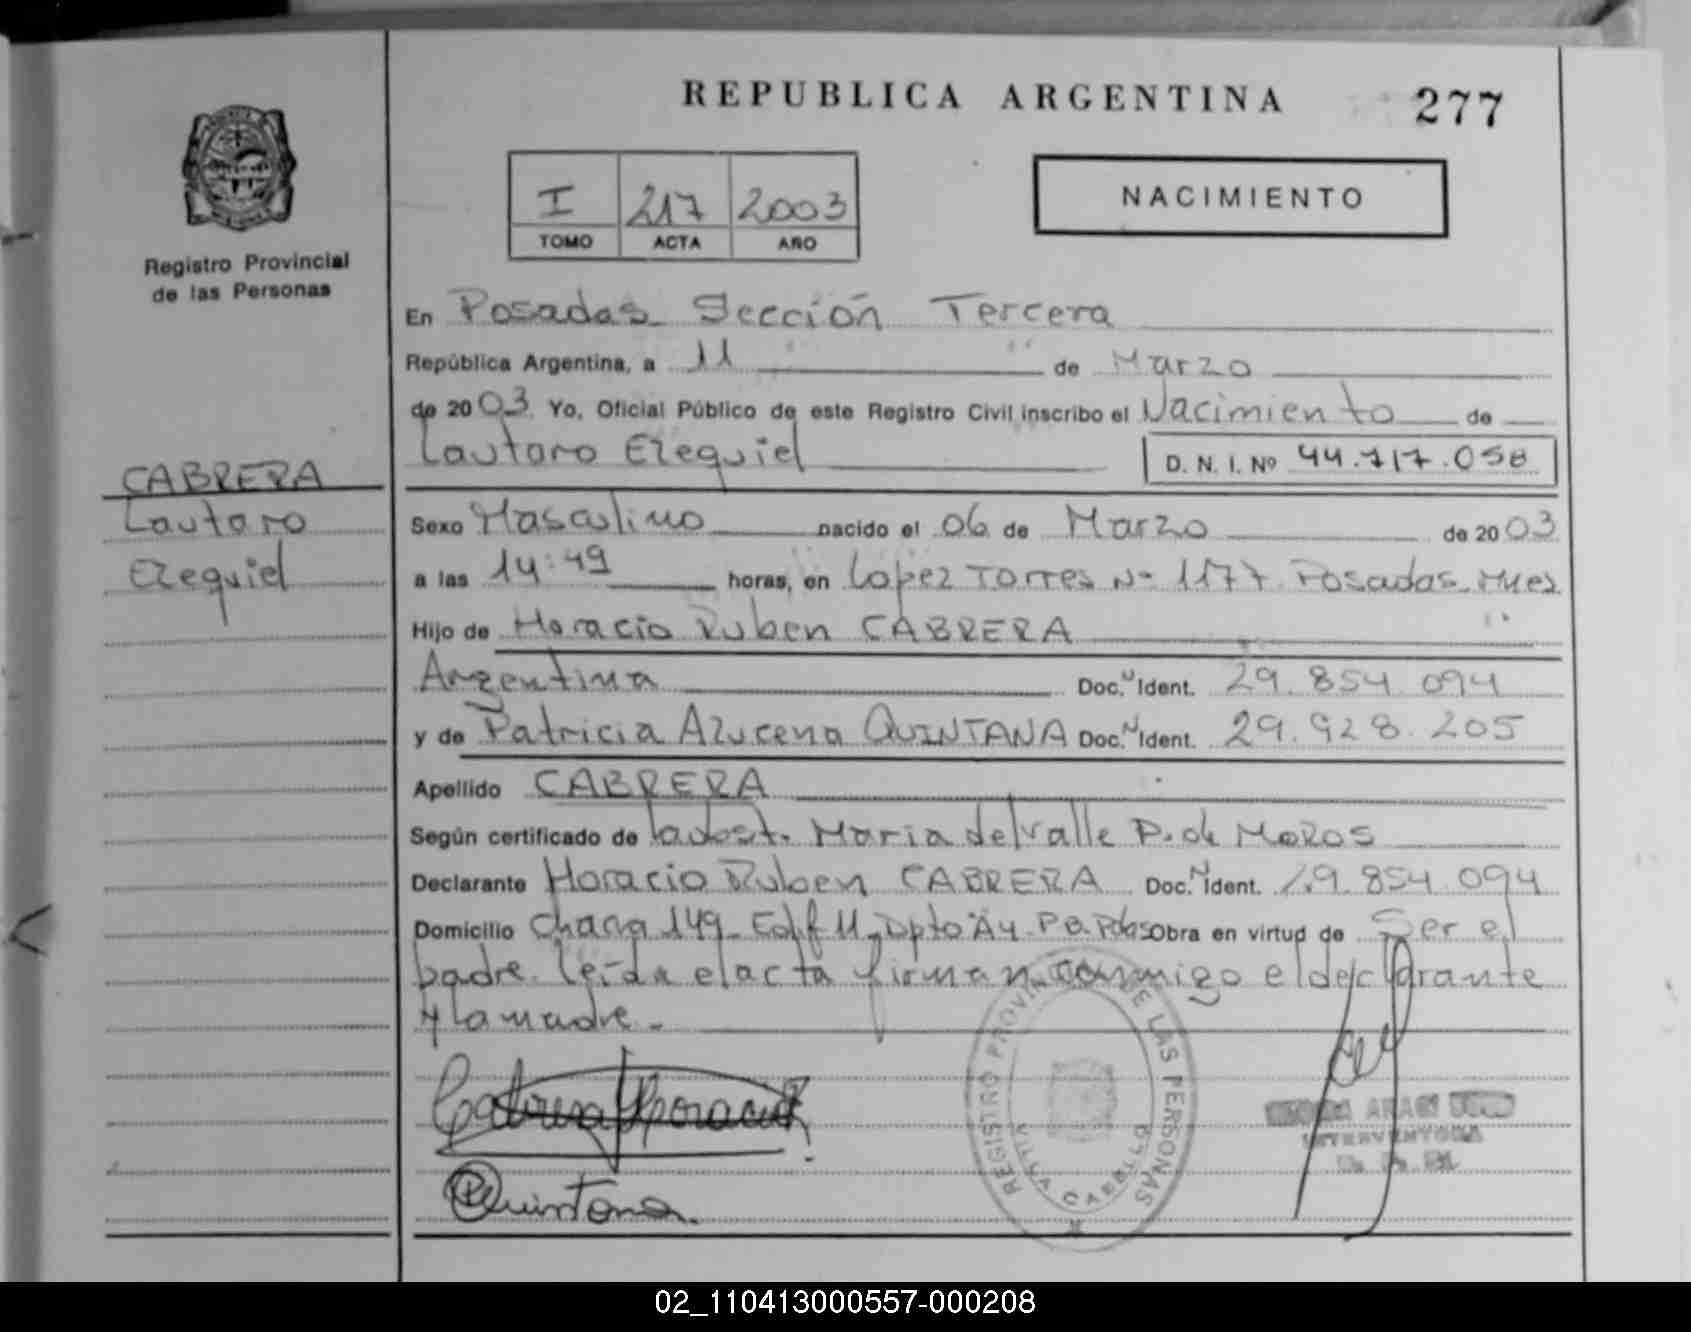 REPUBLICA ARGENTINA 277
I 217 2003
TOMO ACTA AÑO
NACIMIENTO
Registro Provincial
de las Personas
En Posadas Sección Tercera
República Argentina, a 11 de Marzo
de 2003 Yo, Oficial Público de este Registro Civil inscribo el Nacimiento de
Lautaro Ezequiel D. N. I. Nº 44.717.058
CABRERA
Lautaro
Ezequiel
Sexo Masculino nacido el 06 de Marzo de 2003
a las 14:49 horas, en Lopez Torres Nº 1177 Posadas Mnes
Hijo de Horacio Ruben CABRERA
Argentina Doc. Ident. 29.854.094
y de Patricia Azucena QUINTANA Doc. Ident. 29.928.205
Apellido CABRERA
Según certificado de la obst. Maria del Valle P. de
Declarante Horacio Ruben CABRERA Doc. Ident. 29.854.094
Domicilio Chacra 149 Edif 11 Dpto "A4 P.B. Pdas Obra en virtud de Ser el
padre. Leída el acta firman conmigo el declarante
y la madre.-
Cabrera Horacio R
PQuintana
REGISTRO PROVINCIAL DE LAS PERSONAS
VILLA CABELLO
INTERVENTORA
02_110413000557-000208